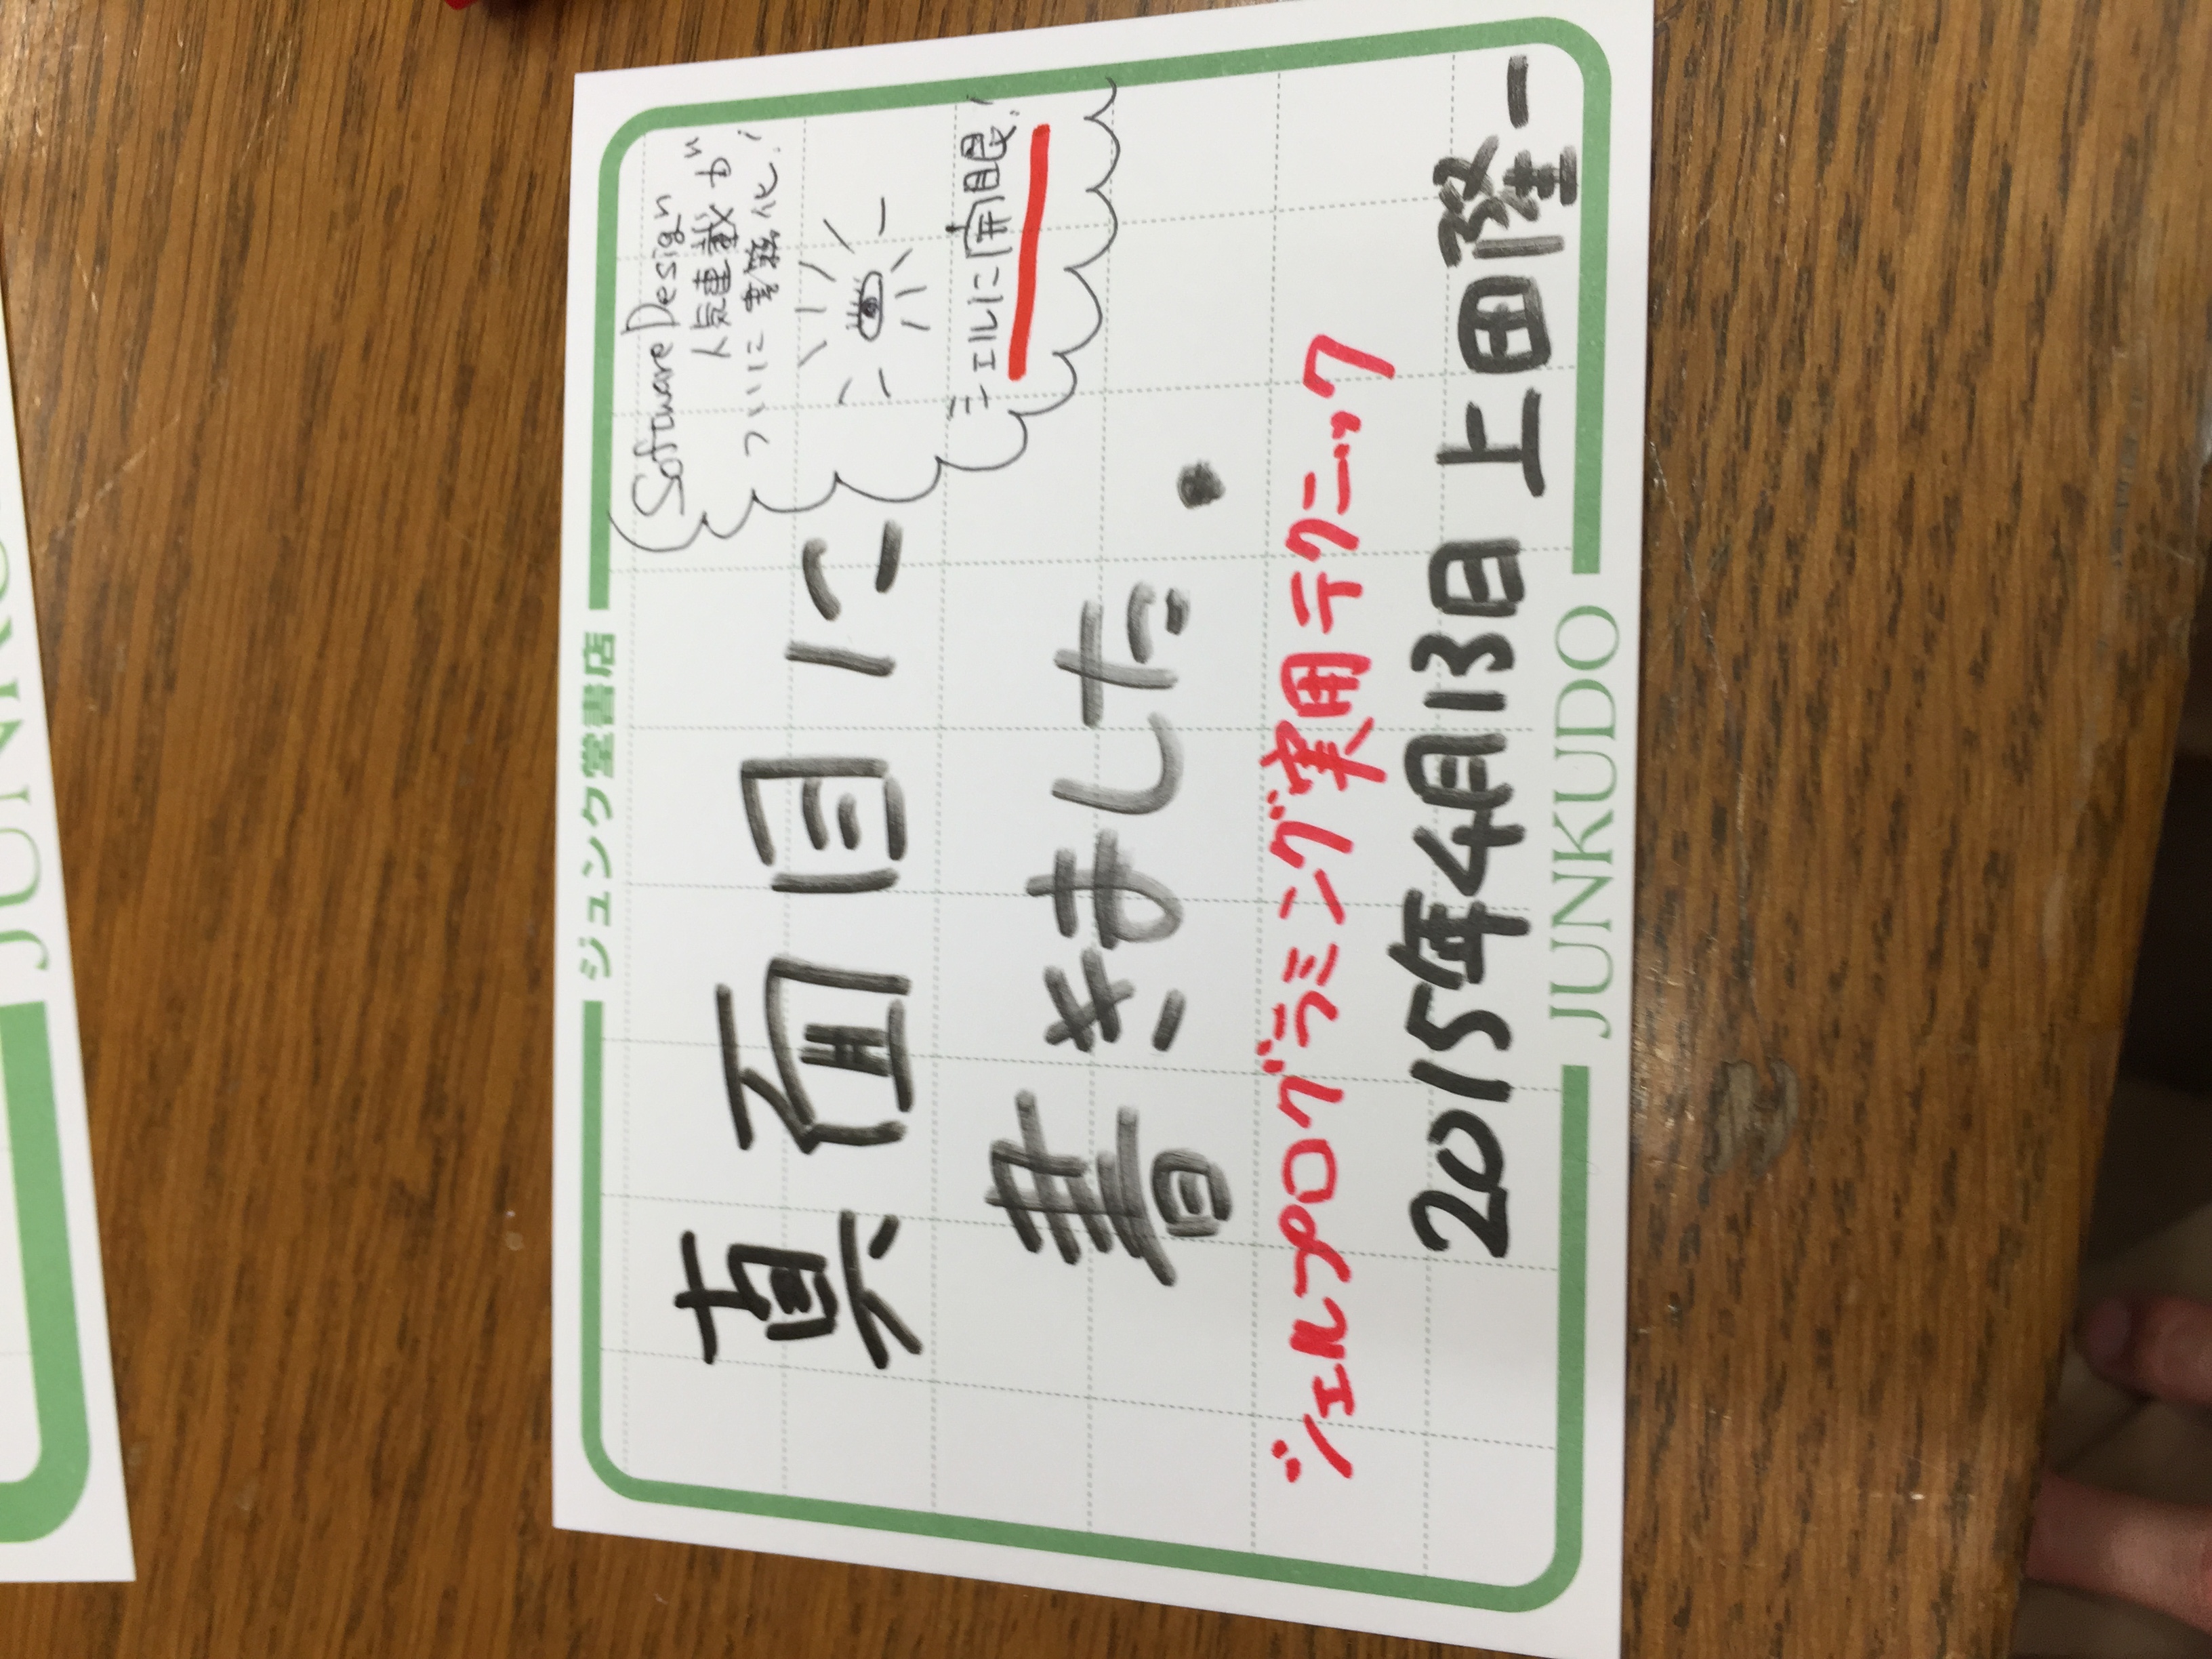 JUNKU
ジュンク堂書店
Software Design
人気連載が
ついに書籍化!
シェルに開眼!
真面目に
書きました.
シェルプログラミング実用テクニック
2015年4月13日 上田隆一
JUNKUDO